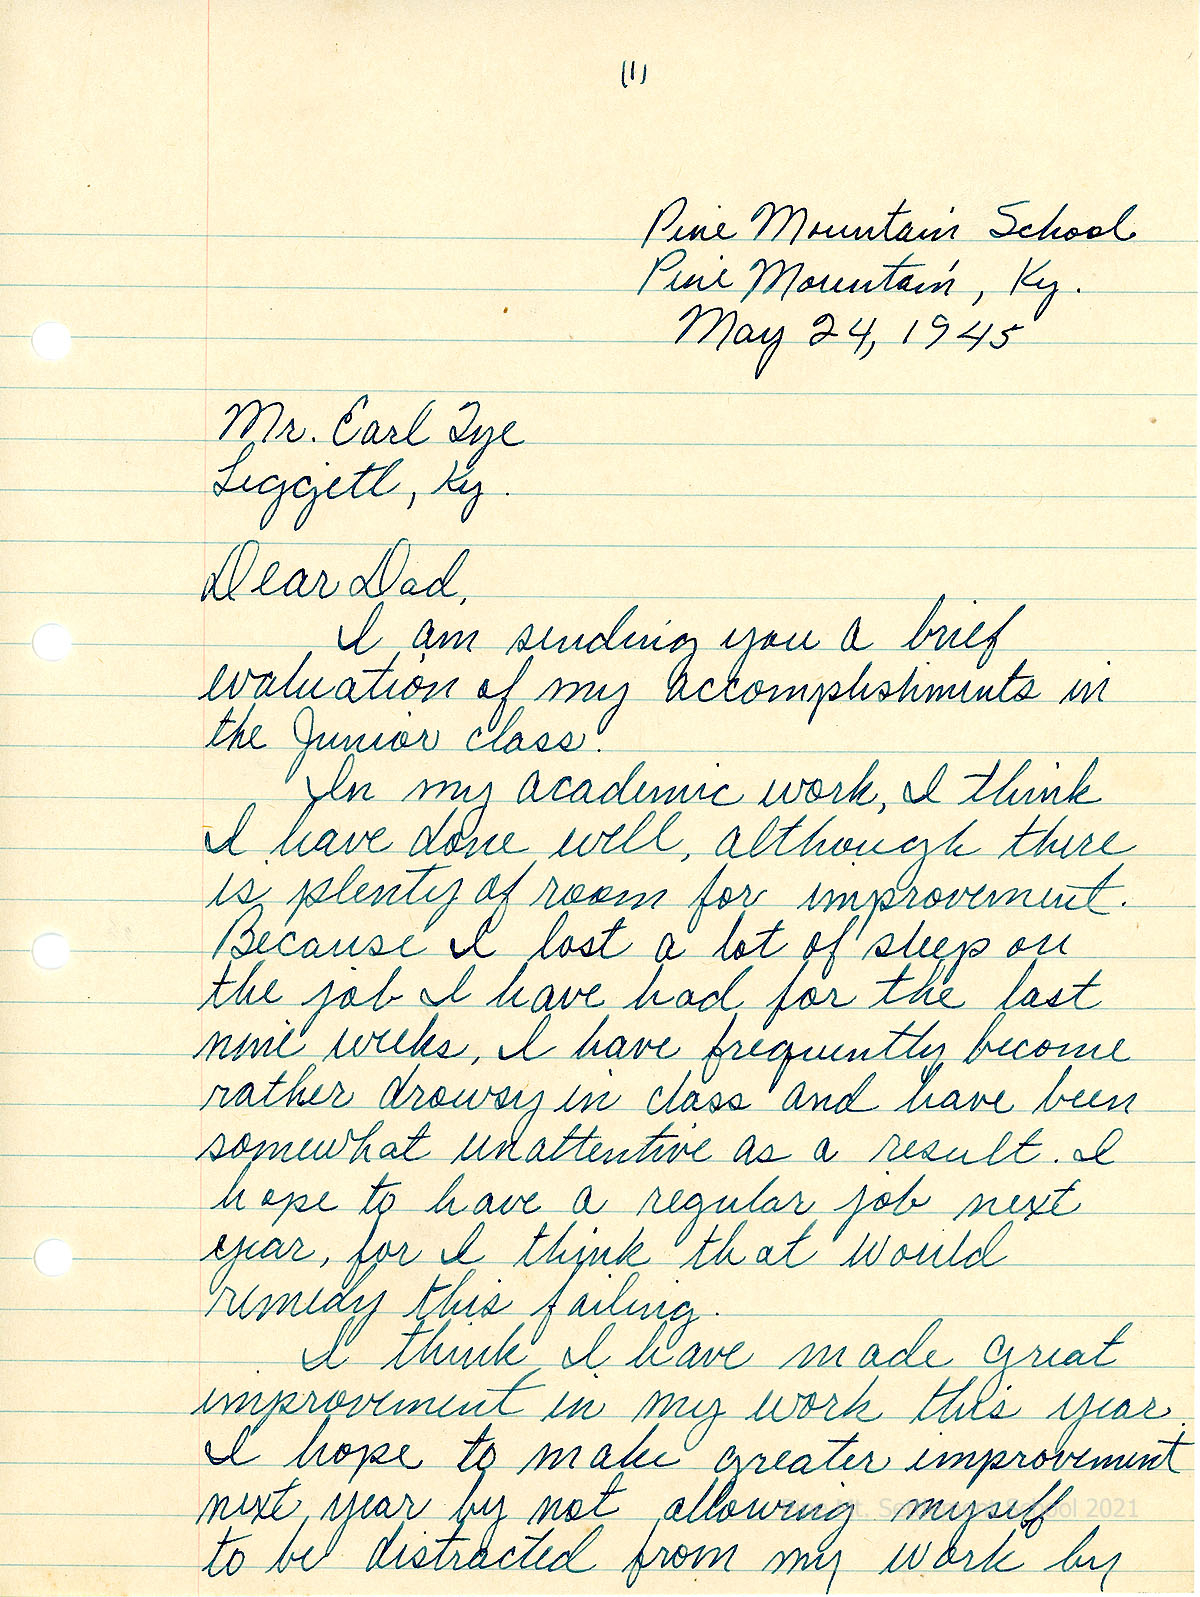 (1)
Pine Mountain School
Pine Mountain, Ky.
May 24, 1945
Mr. Earl Tye
Liggett, Ky.
Dear Dad,
I am sending you a brief
evaluation of my accomplishments in
the Junior class.
In my academic work, I think
I have done well, although there
is plenty of room for improvement.
Because I lost a lot of sleep on
the job I have had for the last
nine weeks, I have frequently become
rather drowsy in class and have been
somewhat unattentive as a result. I
hope to have a regular job next
year, for I think that would
remedy this failing.
I think I have made great
improvement in my work this year.
I hope to make greater improvement
next year by not allowing myself
to be distracted from my work by